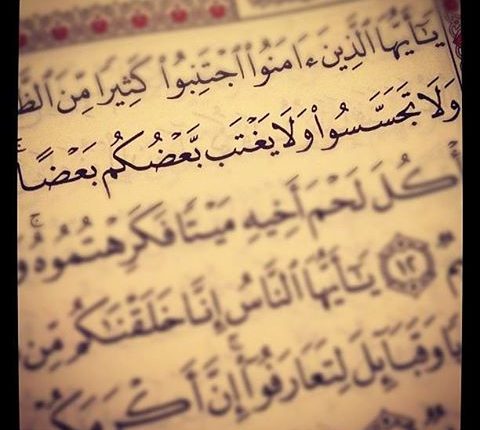 يَٰٓأَيُّهَا ٱلَّذِينَ ءَامَنُوا۟ ٱجْتَنِبُوا۟ كَثِيرًا مِّنَ ٱلظَّ
وَلَا تَجَسَّسُوا۟ وَلَا يَغْتَب بَّعْضُكُم بَعْضًا ۚ
أْكُلَ لَحْمَ أَخِيهِ مَيْتًا فَكَرِهْتُمُوهُ ۚ وَ
يمٌ ١٢ يَٰٓأَيُّهَا ٱلنَّاسُ إِنَّا خَلَقْنَٰكُم مِّن
بًا وَقَبَآئِلَ لِتَعَارَفُوٓا۟ ۚ إِنَّ أَكْرَمَكُمْ